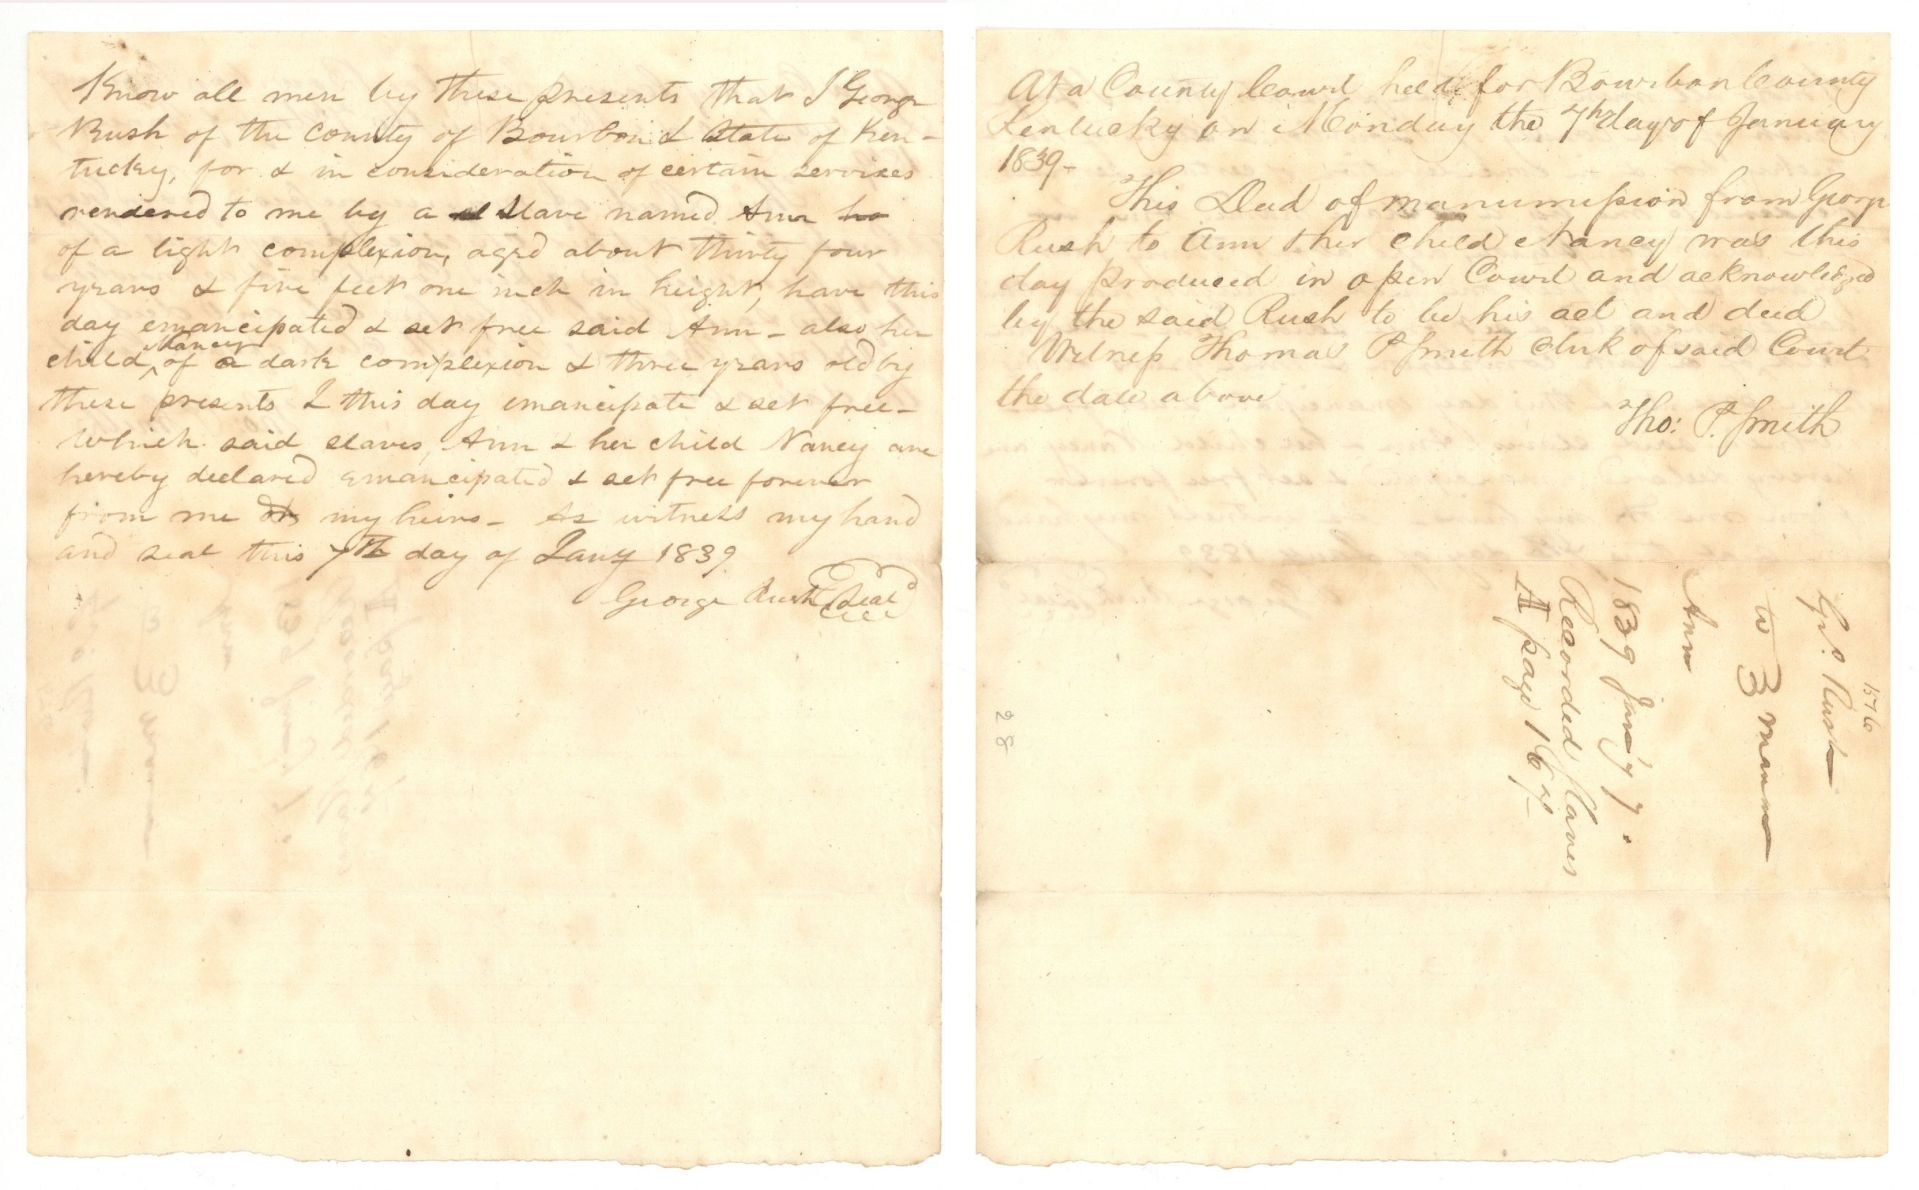 Know all men by these presents that I George
Rush of the County of Bourbon & State of Ken-
tucky, for & in consideration of certain services
rendered to me by a slave named Ann
of a light complexion, aged about thirty four
years & five feet one inch in height, have this
day emancipated & set free said Ann - also her
child Nancy of a dark complexion & three years old by
these presents I this day emancipate & set free -
Which said slaves, Ann & her child Nancy are
hereby declared emancipated & set free forever
from me my heirs - As witness my hand
and seal this 7th day of Jany 1839
George Rush Seal
At a County Court held for Bourbon County
Kentucky on Monday the 7th day of January
1839 -
This Deed of manumission from George
Rush to Ann & her child Nancy was this
day produced in open Court and acknowledged
by the said Rush to be his act and deed
Witness Thomas P Smith Clerk of said Court
the date above
Tho: P. Smith
1576
Go. Rush
to 3 Manum
Ann
1839 Jany 7.
Recorded Slaves
A page 167
28